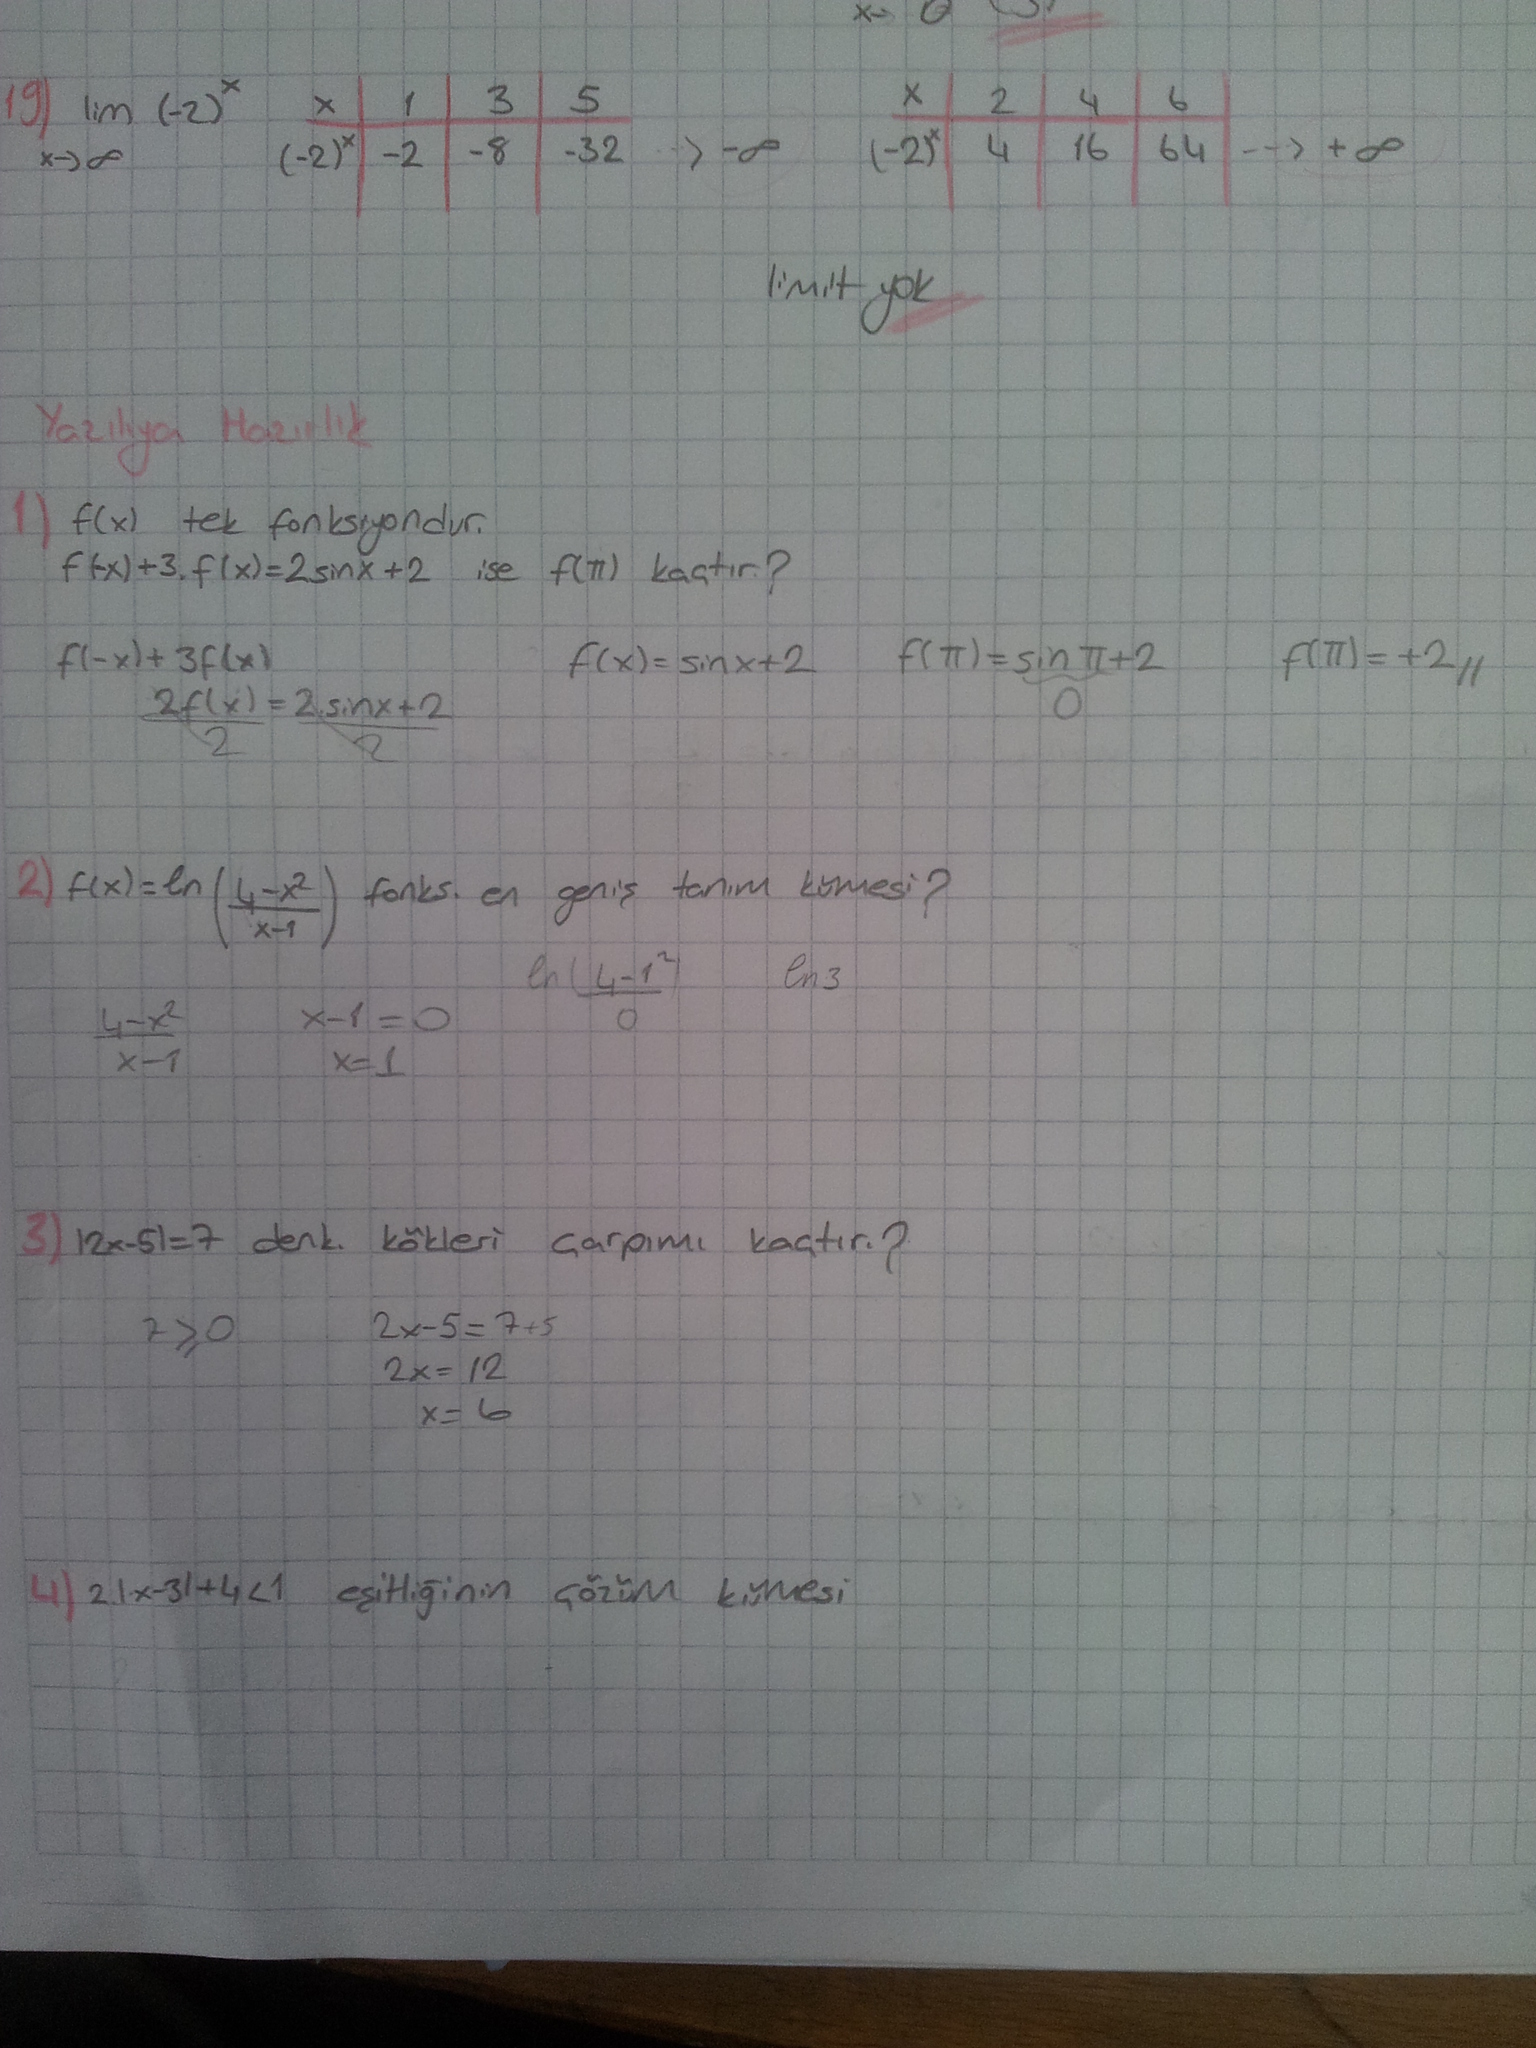 x→ 0
19) lim (-2)^x x 1 3 5 x 2 4 6
x→∞ (-2)^x -2 -8 -32 --> -∞ (-2)^x 4 16 64 ---> +∞
limit yok
Yazılıya Hazırlık
1) f(x) tek fonksiyondur.
f(-x)+3.f(x)=2sinx+2 ise f(π) kaçtır?
f(-x)+3f(x) f(x)=sinx+2 f(π)=sinπ+2 f(π)=+2//
2f(x)=2.sinx+2 0
2 2
2) f(x)=ln(4-x²/x-1) fonks. en geniş tanım kümesi?
ln(4-1²/0) ln3
4-x² x-1=0
x-1 x=1
3) |2x-5|=7 denk. kökleri çarpımı kaçtır?
7≥0 2x-5=7+5
2x=12
x=6
4) 2.|x-3|+4<1 eşitliğinin çözüm kümesi